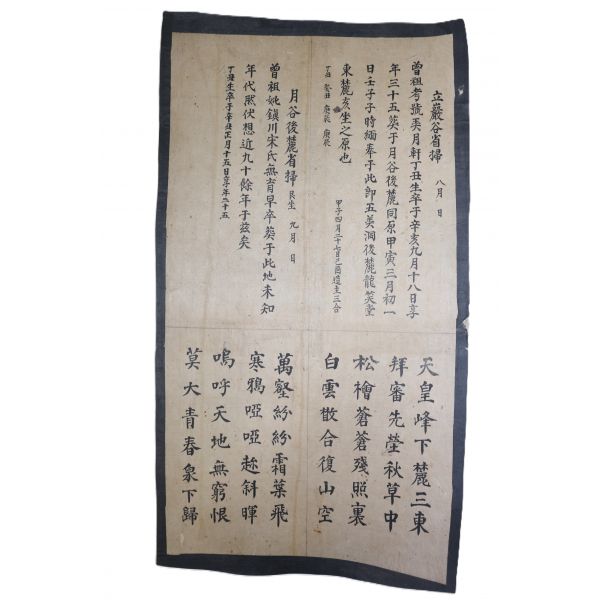 立巖谷省掃 八月 日
曾祖考號美月軒丁丑生卒于辛亥九月十八日享
年三十五葬于月谷後麓同原甲寅三月初一
日壬子子時緬奉于此卽五美洞後麓龍芙堂
東麓亥坐之原也
甲子四月二十七日己酉造主三合
丁丑 癸丑 庚辰 庚辰
月谷後麓省掃 艮坐 九月 日
曾祖妣鎭川宋氏無育早卒葬于此地未知
年代然伏想近九十餘年于玆矣
丁丑生卒于辛丑正月十五日享年二十五
天皇峰下麓三東
拜審先塋秋草中
松檜蒼蒼殘照裏
白雲散合復山空
萬壑紛紛霜葉飛
寒鴉啞啞趂斜暉
嗚呼天地無窮恨
莫大青春泉下歸